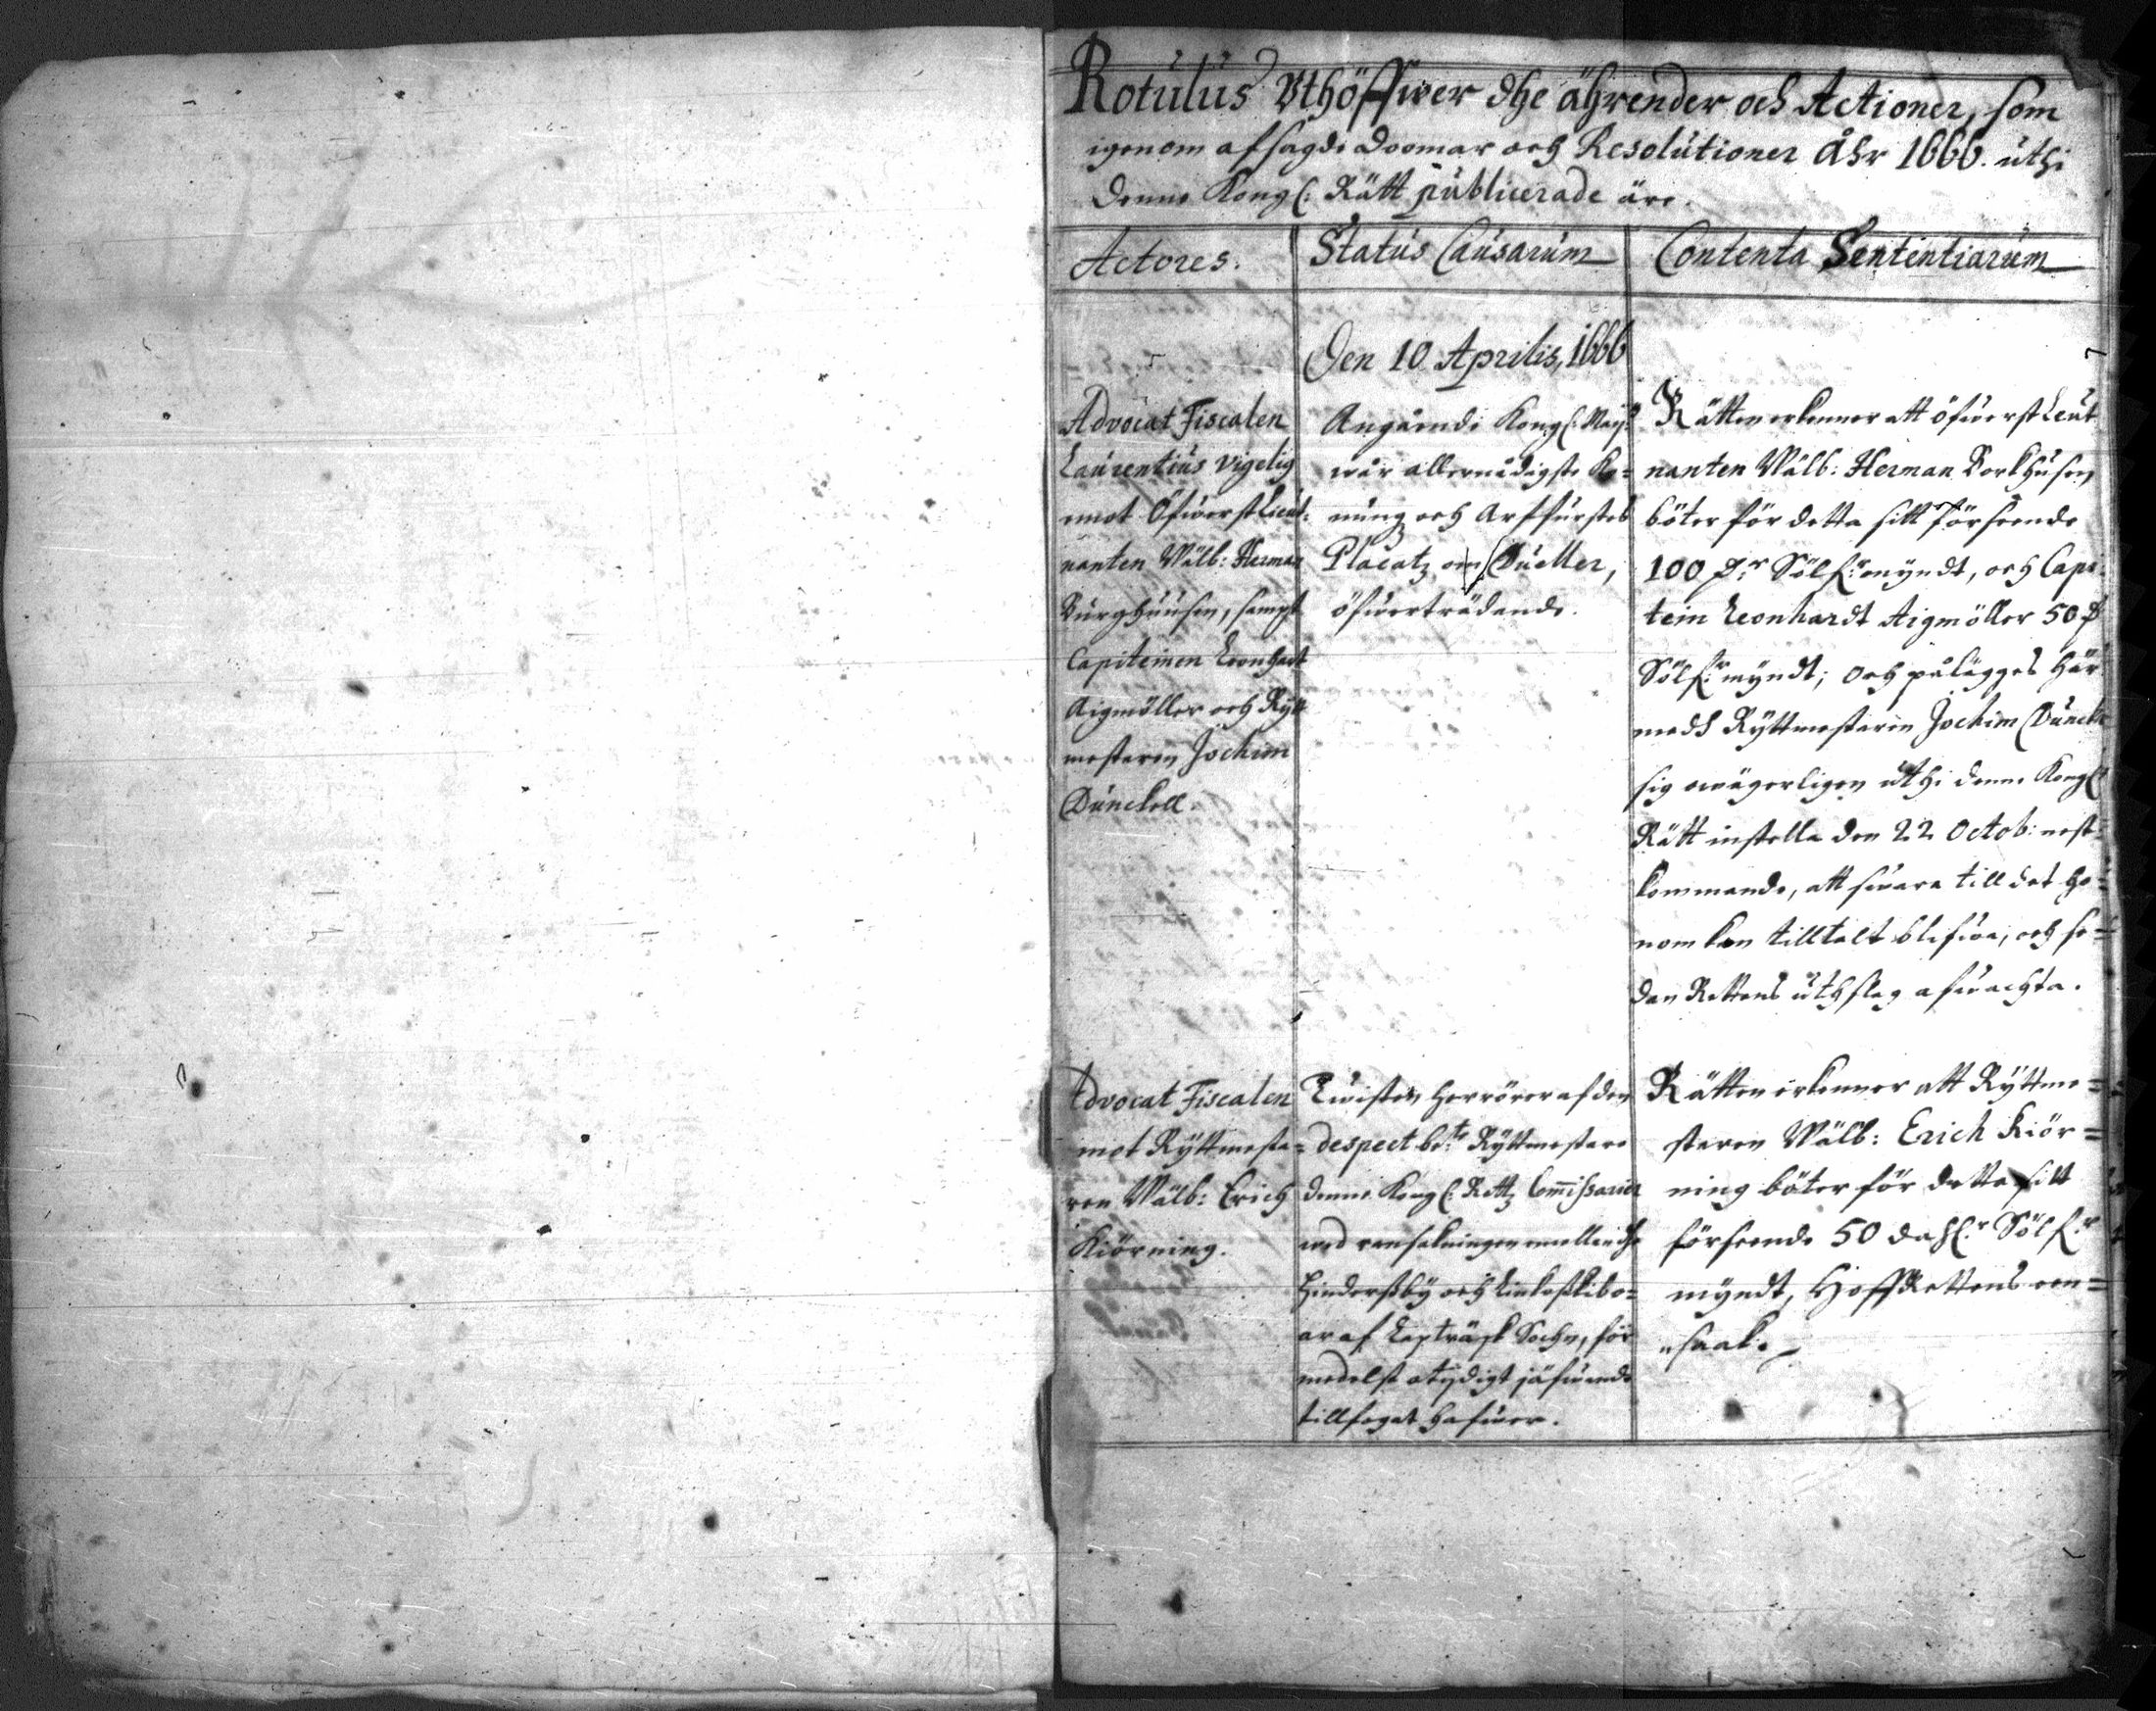 Rotulus Uthöffwer dhe ährender och Actioner, som
igenom afsagde doomar och Resolutioner Åhr 1666. uthi
denne Kongl: Rätt publicerade äre.
Actores.
Status Causarum
Contenta Sententiarum
Den 10 Aprilis, 1666
Advocat Fiscalen
Laurentius Vigelig
emot Öfwerstlieut-
nanten Wälb: Herman
Burghuusen, sampt
Capiteinen Leonhart
Aigmöller och Rytt
mestaren Jochim
Dunckell.
Angående Kongl: Maij:tz
wår allernådigste Ko-
nung och Arffurstes
Placatz om Dueller,
öfwerträdande.
Rätten erkenner att öfwerst Leut
nanten Wälb: Herman Borkhusen
böter för detta sitt förseende
100 D:r Sölf:r myndt, och Capi-
tein Leonhardt Aigmöller 50 D
Sölf:r myndt; och pålägges här
medh Ryttmestaren Jochim Dunck
sig owägerligen uthi denne Kongl:
Rätt instella den 22 Octob: nest-
kommande, att swara till det ho-
nom kan tilltalt blifwa, och se-
dan Rettens uthslag afwachta.
Advocat Fiscalen
mot Ryttmesta-
ren Wälb: Erich
Kiörning.
Twisten herrörer af den
despect be:te Ryttmestare
denne Kongl: Rettz Commissarier
wed ransakningen emellan dhe
Hindersby och Linkoskibo-
ar af Lapträsk Sochn, för
medelst otydigt jäfwande
tillfogat hafwer.
Rätten erkenner att Ryttme-
staren Wälb: Erich Kiör-
ning böter för detta sitt
förseende 50 dahl:r Sölf:r
myndt, Hoffrettens een-
saak.